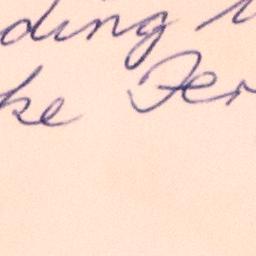 ding
ke Fer